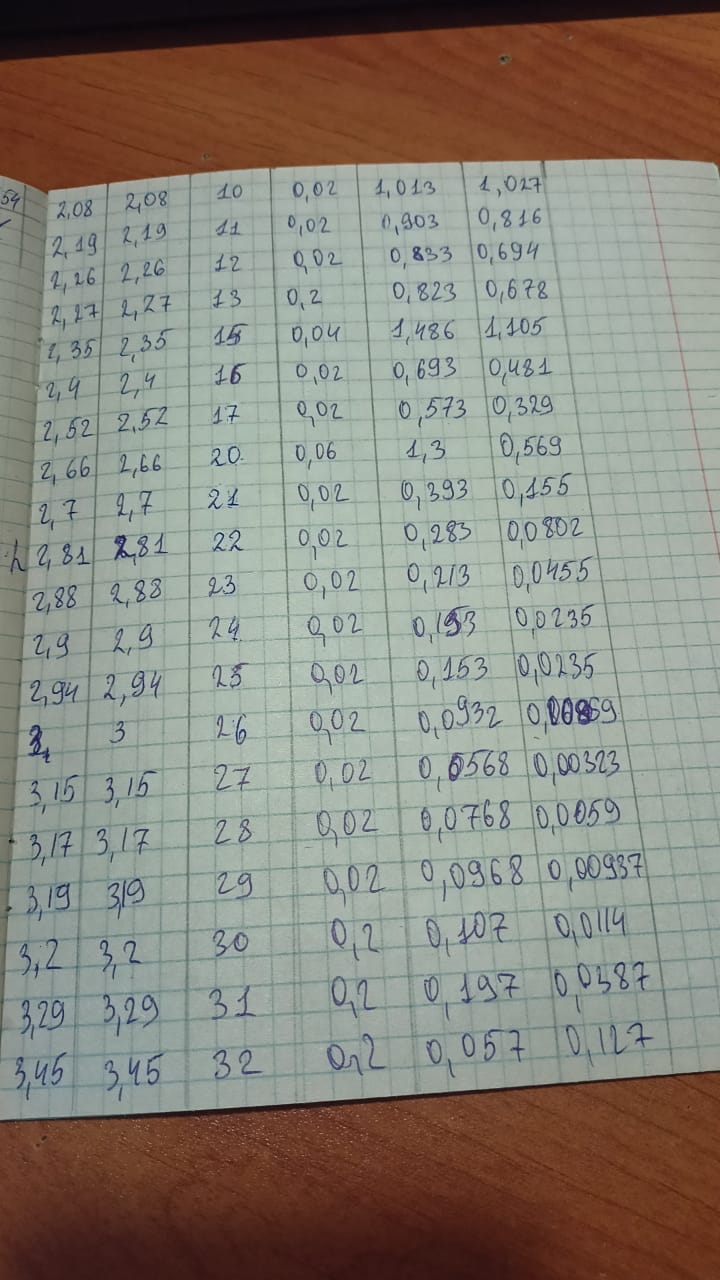 54
2,08 2,08 10 0,02 1,013 1,027
2,19 2,19 11 0,02 0,903 0,816
2,26 2,26 12 0,02 0,833 0,694
2,27 2,27 13 0,2 0,823 0,678
2,35 2,35 15 0,04 1,486 1,105
2,4 2,4 16 0,02 0,693 0,481
2,52 2,52 17 0,02 0,573 0,329
2,66 2,66 20 0,06 1,3 0,569
2,7 2,7 21 0,02 0,393 0,155
2,81 2,81 22 0,02 0,283 0,0802
2,88 2,88 23 0,02 0,213 0,0455
2,9 2,9 24 0,02 0,193 0,0235
2,94 2,94 25 0,02 0,153 0,0235
3 3 26 0,02 0,0932 0,00869
3,15 3,15 27 0,02 0,0568 0,00323
3,17 3,17 28 0,02 0,0768 0,0059
3,19 3,19 29 0,02 0,0968 0,00937
3,2 3,2 30 0,2 0,107 0,0114
3,29 3,29 31 0,2 0,197 0,0387
3,45 3,45 32 0,2 0,057 0,127